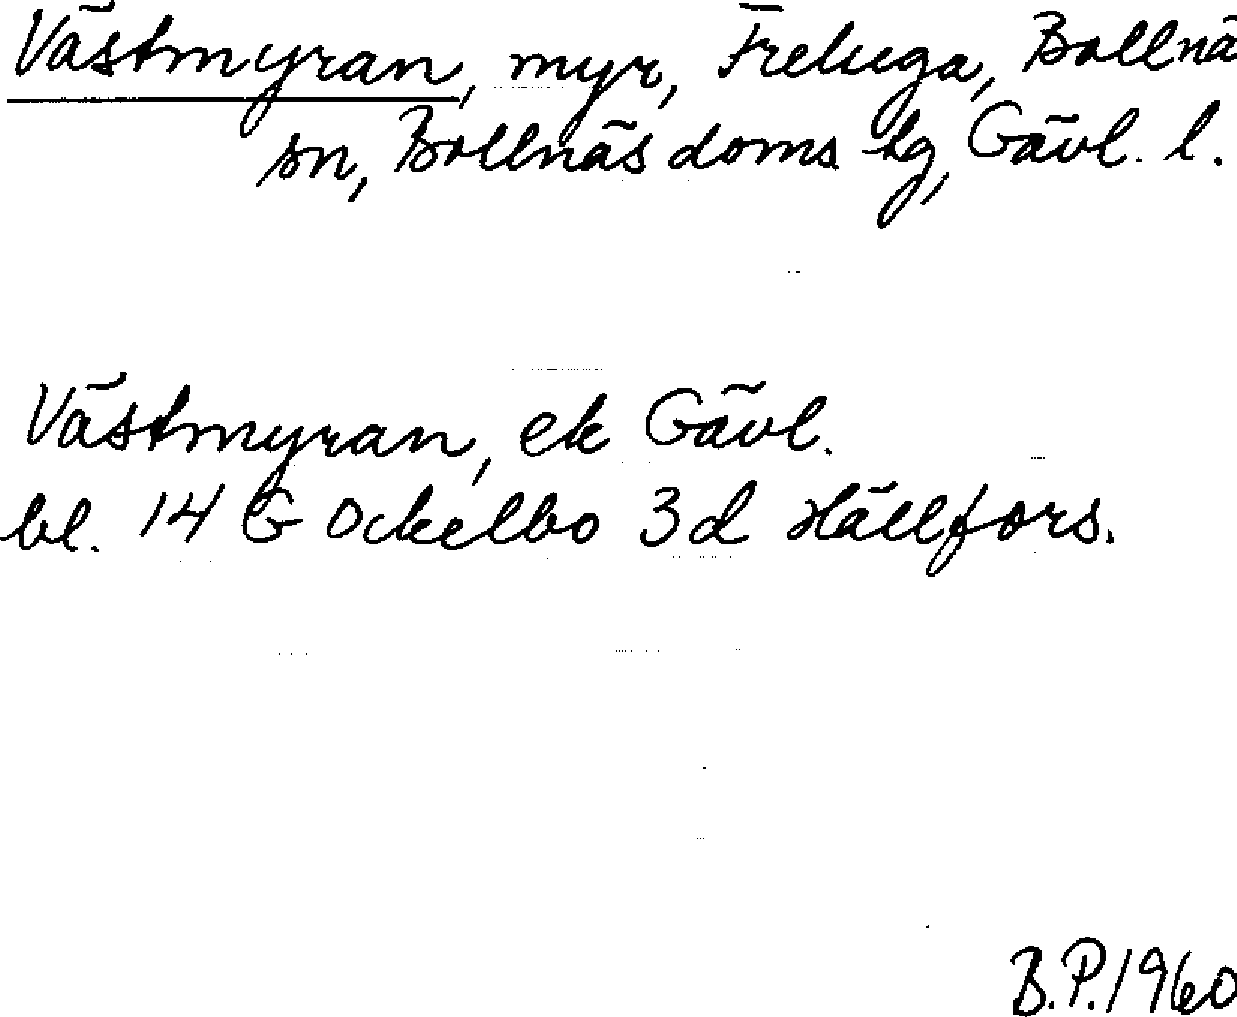 Västmyran, myr, Freluga, Bollnä
sn, Bollnäs doms. tg, Gävl. l.
Västmyran, ek Gävl.
bl. 14 G Ockelbo 3d Hällfors.
B.P. 1960